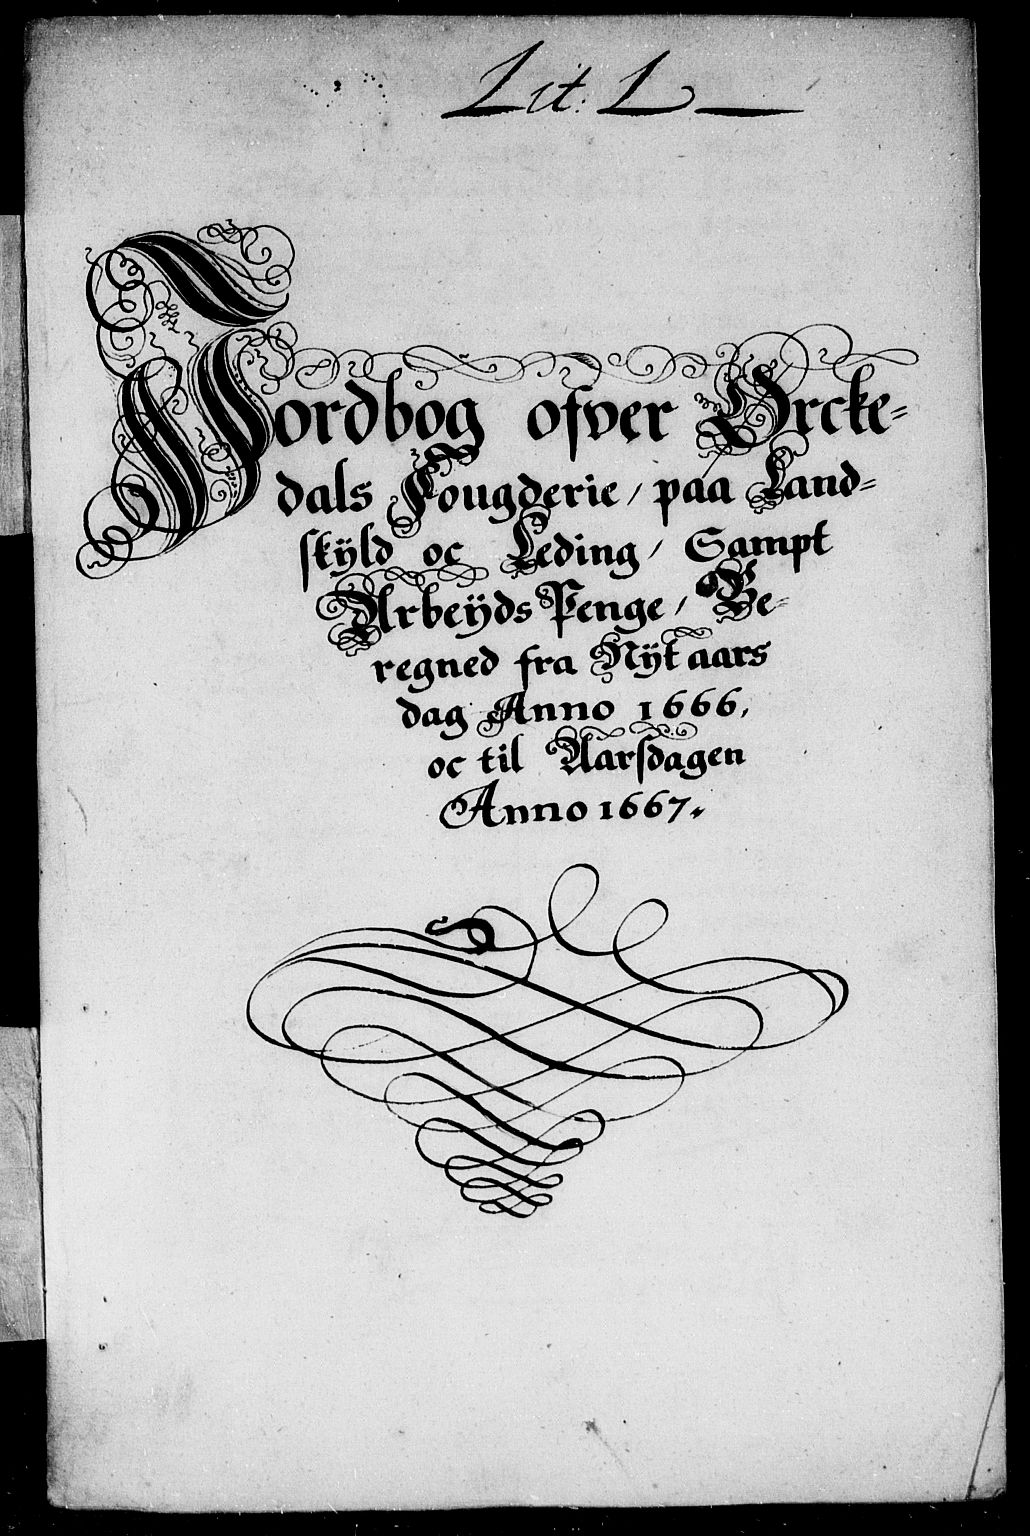 Lit: L
Jordbog ofver Ørcke=
dals Fougderie / paa Land=
skÿld oc Leding / Sampt
Arbeÿds Penge / Be=
regned fra Nÿt aars
dag Anno 1666,
oc til Aarsdagen
Anno 1667.